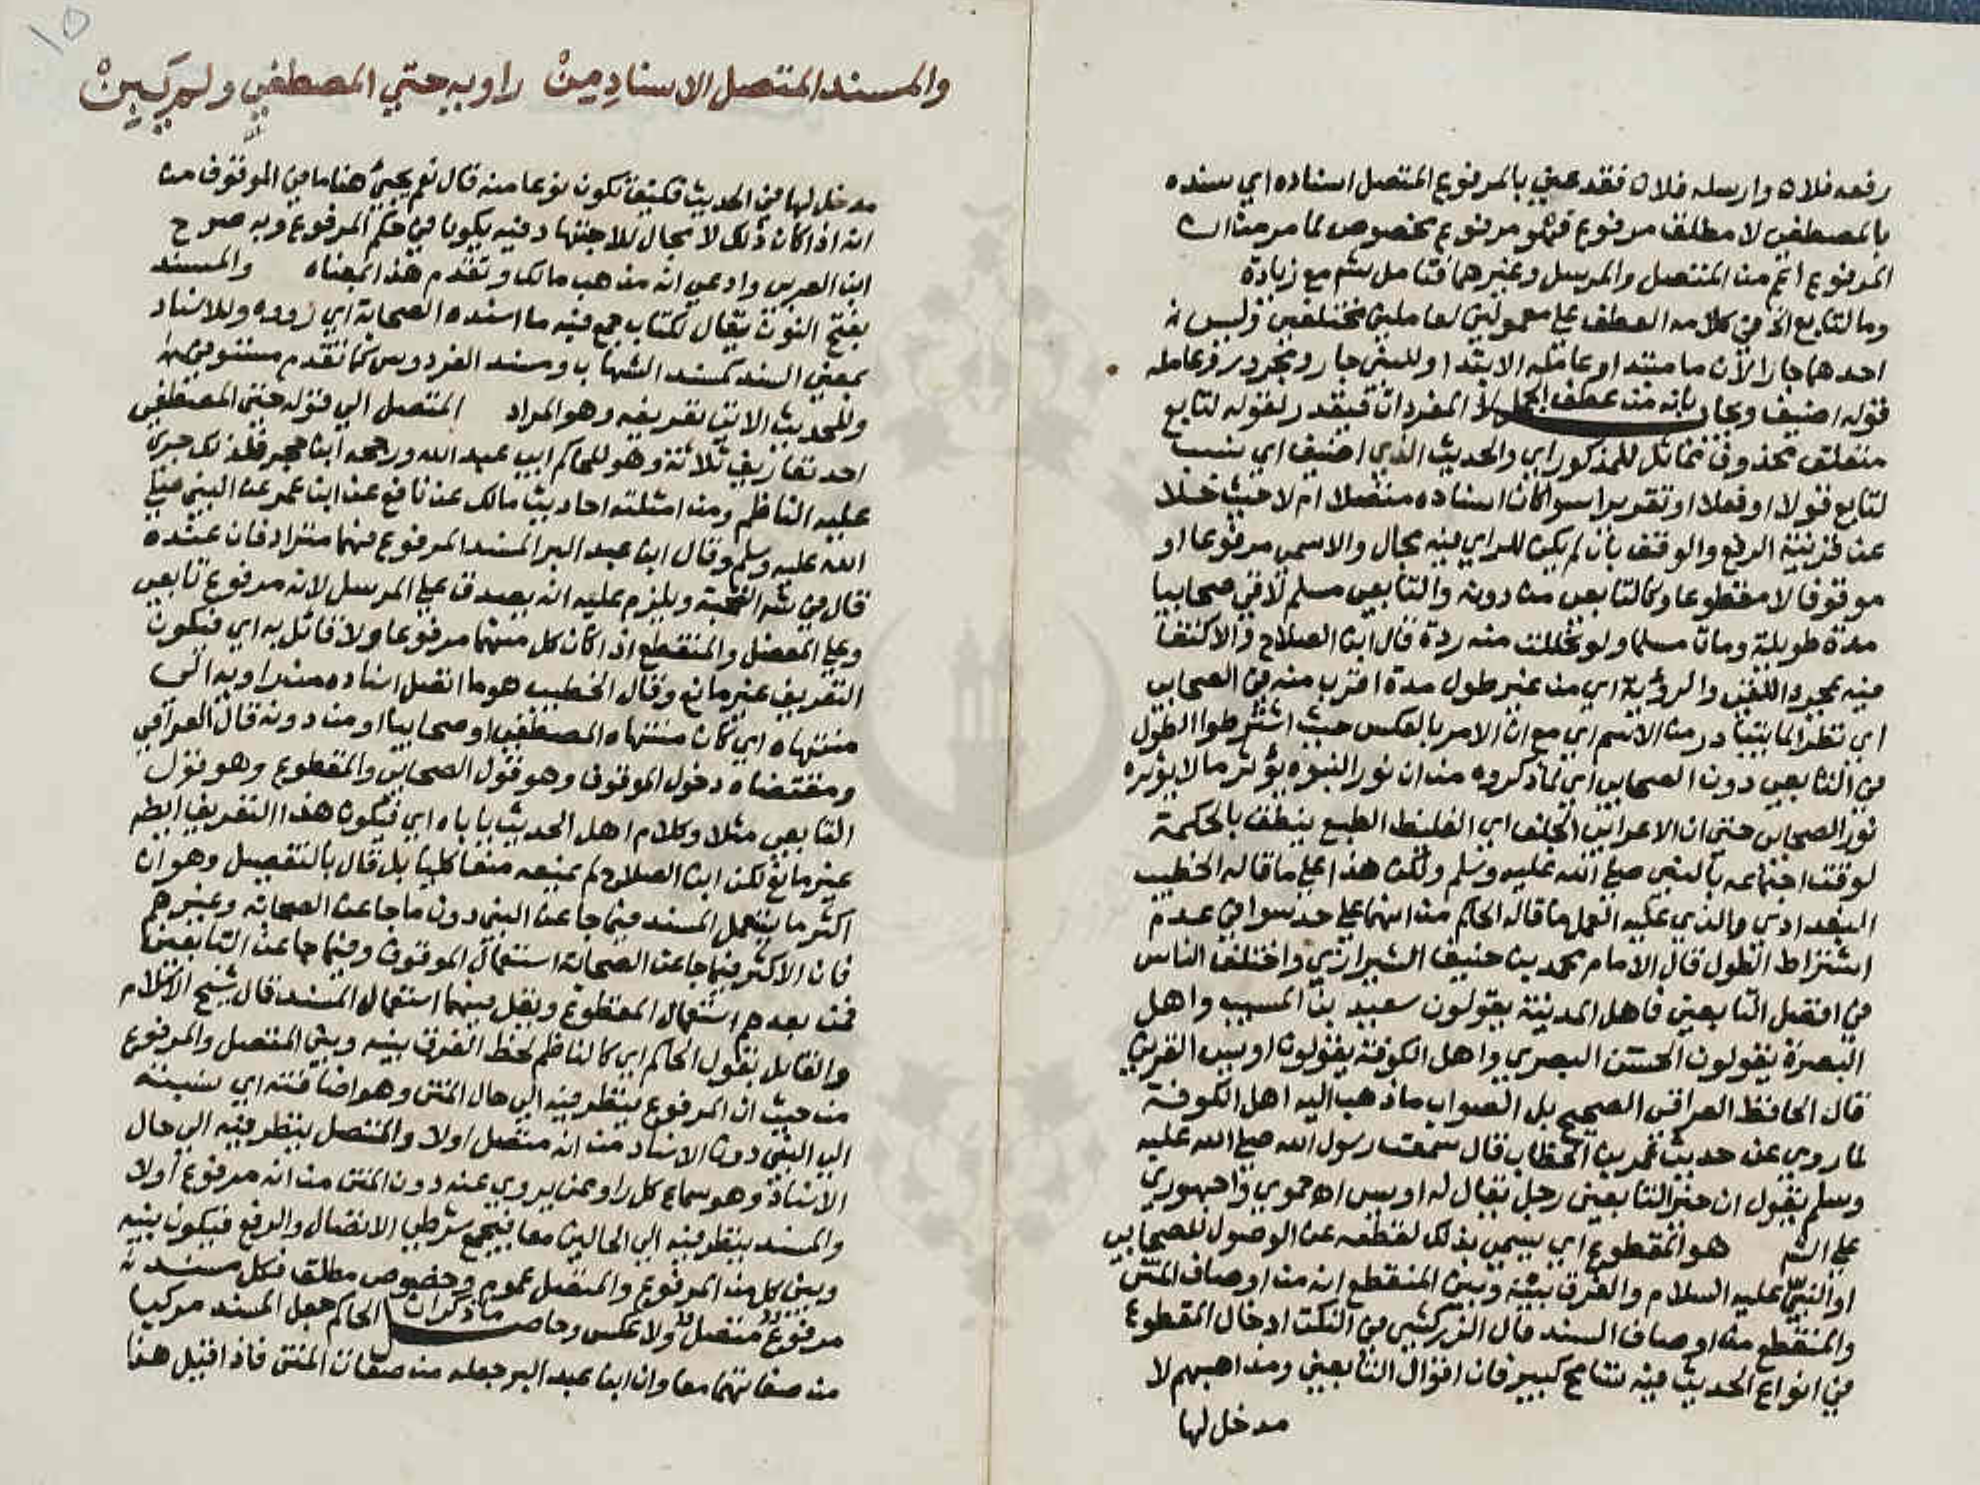 رفعه فلان وارسله فلان فقد عني بالمرفوع المتصل اسناده اي سنده
بالمصطفي لا مطلق مرفوع فهو مرفوع مخصوص لما مر من ان
المرفوع اعم من المتصل والمرسل وغيرهما فتامل شم مع زيادة
وما لتابع الخ في كلامه العطف علي معمولين لعاملين مختلفين وليس
احدهما جارا لان ما مبتدا وعامله الابتدا وللنبي جار ومجرور وعامله
قوله اضيف ويجاب بانه من عطف الجمل لا المفردات فيقدر لقوله لتابع
متعلق محذوف مماثل للمذكور اي والحديث الذي اضيف اي ينسب
لتابع قولا او فعلا او تقريرا سوا كان اسناده متصلا ام لا حيث خلا
عن قرينة الرفع والوقف بان لم يكن للراي فيه مجال والا سمي مرفوعا او
موقوفا لا مقطوعا وكالتابعي من دونه والتابعي مسلم لاقي صحابيا
مدة طويلة ومات مسلما ولو تخللت منه ردة قال ابن الصلاح والاكتفا
فيه بمجرد اللقي والرؤية اي من غير طول مدة اقرب منه في الصحابي
اي نظرا لما يتبادر من الاسم اي مع ان الامر بالعكس حيث اشترطوا الطول
في التابعي دون الصحابي اي لما ذكروه من ان نور النبوه يؤثر ما لا يؤثره
نور الصحابي حتي ان الاعرابي الجلف اي الغليظ الطبع ينطق بالحكمة
لوقت اجتماعه بالنبي صلي الله عليه وسلم ولكن هذا علي ما قاله الخطيب
البغدادي والذي عليه العمل ما قاله الحاكم من انهما علي حد سوا في عدم
اشتراط الطول قال الامام محمد بن حنيف الشيرازي واختلف الناس
في افضل التابعين فاهل المدينة يقولون سعيد بن المسيب واهل
البصرة يقولون الحسن البصري واهل الكوفة يقولون اويس القرني
قال الحافظ العراقي الصحيح بل الصواب ما ذهب اليه اهل الكوفة
لما روي عن حديث عمر بن الخطاب قال سمعت رسول الله صلي الله عليه
وسلم يقول ان خير التابعين رجل يقال له اويس اه حموي واجهوري
علي الشم هو المقطوع اي يسمي بذلك لقطعه عن الوصول للصحابي
او النبي عليه السلام والفرق بينه وبين المنقطع انه من اوصاف المتن
والمنقطع من اوصاف السند قال الزركشي في النكت ادخال المقطوع
في انواع الحديث فيه تسامح كبير فان اقوال التابعين ومذاهبهم لا
مدخل لها
١٥
والمسند المتصل الاسناد من راويه حتي المصطفي ولم يبن
مدخل لها في الحديث فكيف تكون نوعا منه قال نعم يجئ هنا ما في الموقوف من
انه اذا كان ذلك لا مجال للاجتهاد فيه يكون في حكم المرفوع وبه صرح
ابن العربي وادعي انه مذهب مالك وتقدم هذا بمعناه والمسند
بفتح النون يقال لكتاب جمع فيه ما اسنده الصحابة اي رووه وللاسناد
بمعني السند كمسند الشهاب ومسند الفردوس كما تقدم مستوفي
وللحديث الاتي تعريفه وهو المراد المتصل الي قوله حتي المصطفي
احد تعاريف ثلاثة وهو للحاكم ابي عبد الله ورجحه ابن حجر فلذلك جري
عليه الناظم ومن امثلته احاديث مالك عن نافع عن ابن عمر عن النبي صلي
الله عليه وسلم وقال ابن عبد البر المسند المرفوع فهما مترادفان عنده
قال في شم النخبة ويلزم عليه انه يصدق علي المرسل لانه مرفوع تابعي
وعلي المعضل والمنقطع اذا كان كل منهما مرفوعا ولا قائل به اي فيكون
التعريف غير مانع وقال الخطيب هو ما اتصل اسناده من راويه الي
منتهاه اي كان منتهاه المصطفي او صحابيا او من دونه قال العراقي
ومقتضاه دخول الموقوف وهو قول الصحابي والمقطوع وهو قول
التابعي مثلا وكلام اهل الحديث ياباه اي فيكون هذا التعريف ايضا
غير مانع لكن ابن الصلاح لم يمنعه منعا كليا بل قال بالتفصيل وهو ان
اكثر ما يستعمل المسند فيما جا عن النبي دون ما جا عن الصحابه وغيرهم
فان الاكثر فيما جا عن الصحابة استعمال الموقوف وفيما جا عن التابعين
فمن بعدهم استعمال المقطوع ويقل فيهما استعمال المسند قال شيخ الاسلام
والقايل بقول الحاكم اي كالناظم لحظ الفرق بينه وبين المتصل والمرفوع
من حيث ان المرفوع ينظر فيه الي حال المتن وهو اضافته اي نسبته
الي النبي دون الاسناد من انه متصل اولا والمتصل ينظر فيه الي حال
الاسناد وهو سماع كل راو عمن يروي عنه دون المتن من انه مرفوع اولا
والمسند ينظر فيه الي الحالين معا فيجمع شرطي الاتصال والرفع فيكون بينه
وبين كل من المرفوع والمتصل عموم وخصوص مطلق فكل مسند
مرفوع متصل ولا عكس وحاصل ما ذكر ان الحاكم جعل المسند مركبا
من صفاتهما معا وان ابن عبد البر جعله من صفات المتن فاذا قيل هذا